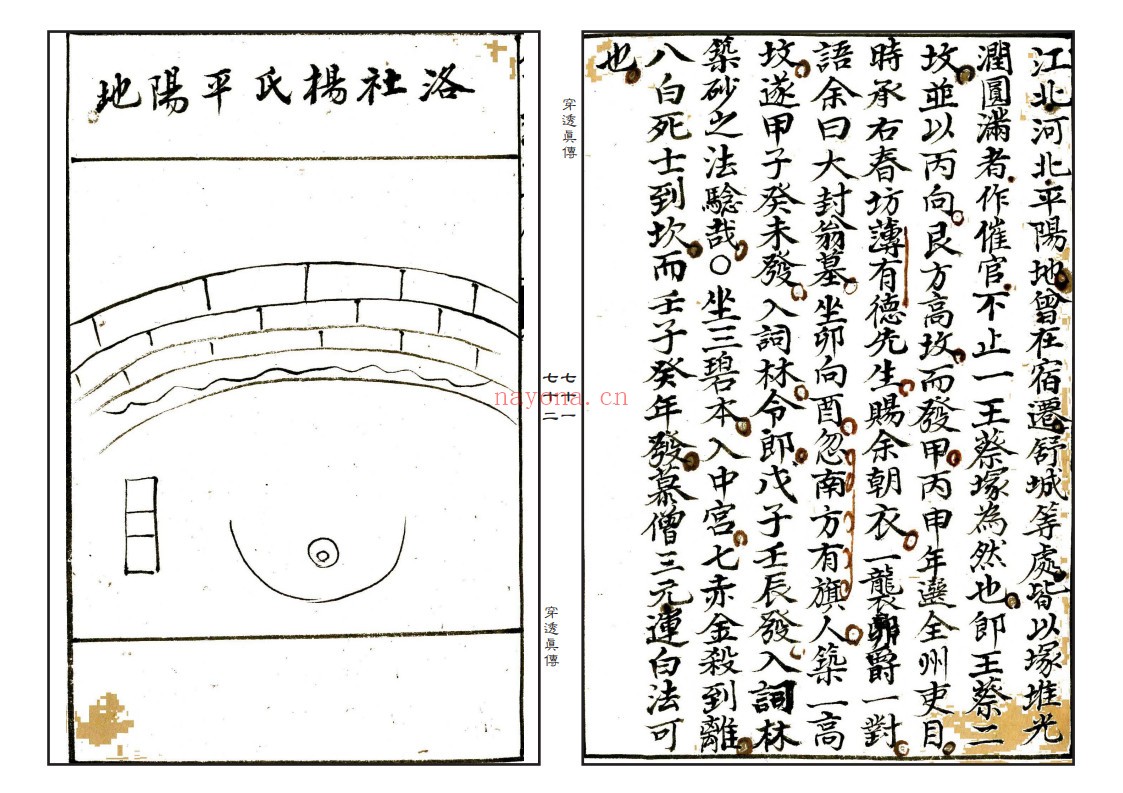 江北河北平陽地曾在宿遷舒城等處皆以塚堆光
潤圓滿者作催官不止一王蔡塚為然也即王蔡二
坟並以丙向艮方高坟而發甲丙申年選全州吏目
時承右春坊薄有德先生賜余朝衣一襲爵一對
語余曰大封翁墓坐卯向酉忽南方有旗人築一高
坟遂甲子癸未發入詞林令郎戊子壬辰發入詞林
築砂之法騐哉○坐三碧本入中宮七赤金殺到離
八白死士到坎而壬子癸年發慕僧三元運白法可
也
穿透眞傳
七十一
七十二
穿透眞傳
洛社楊氏平陽地
nayona.cn